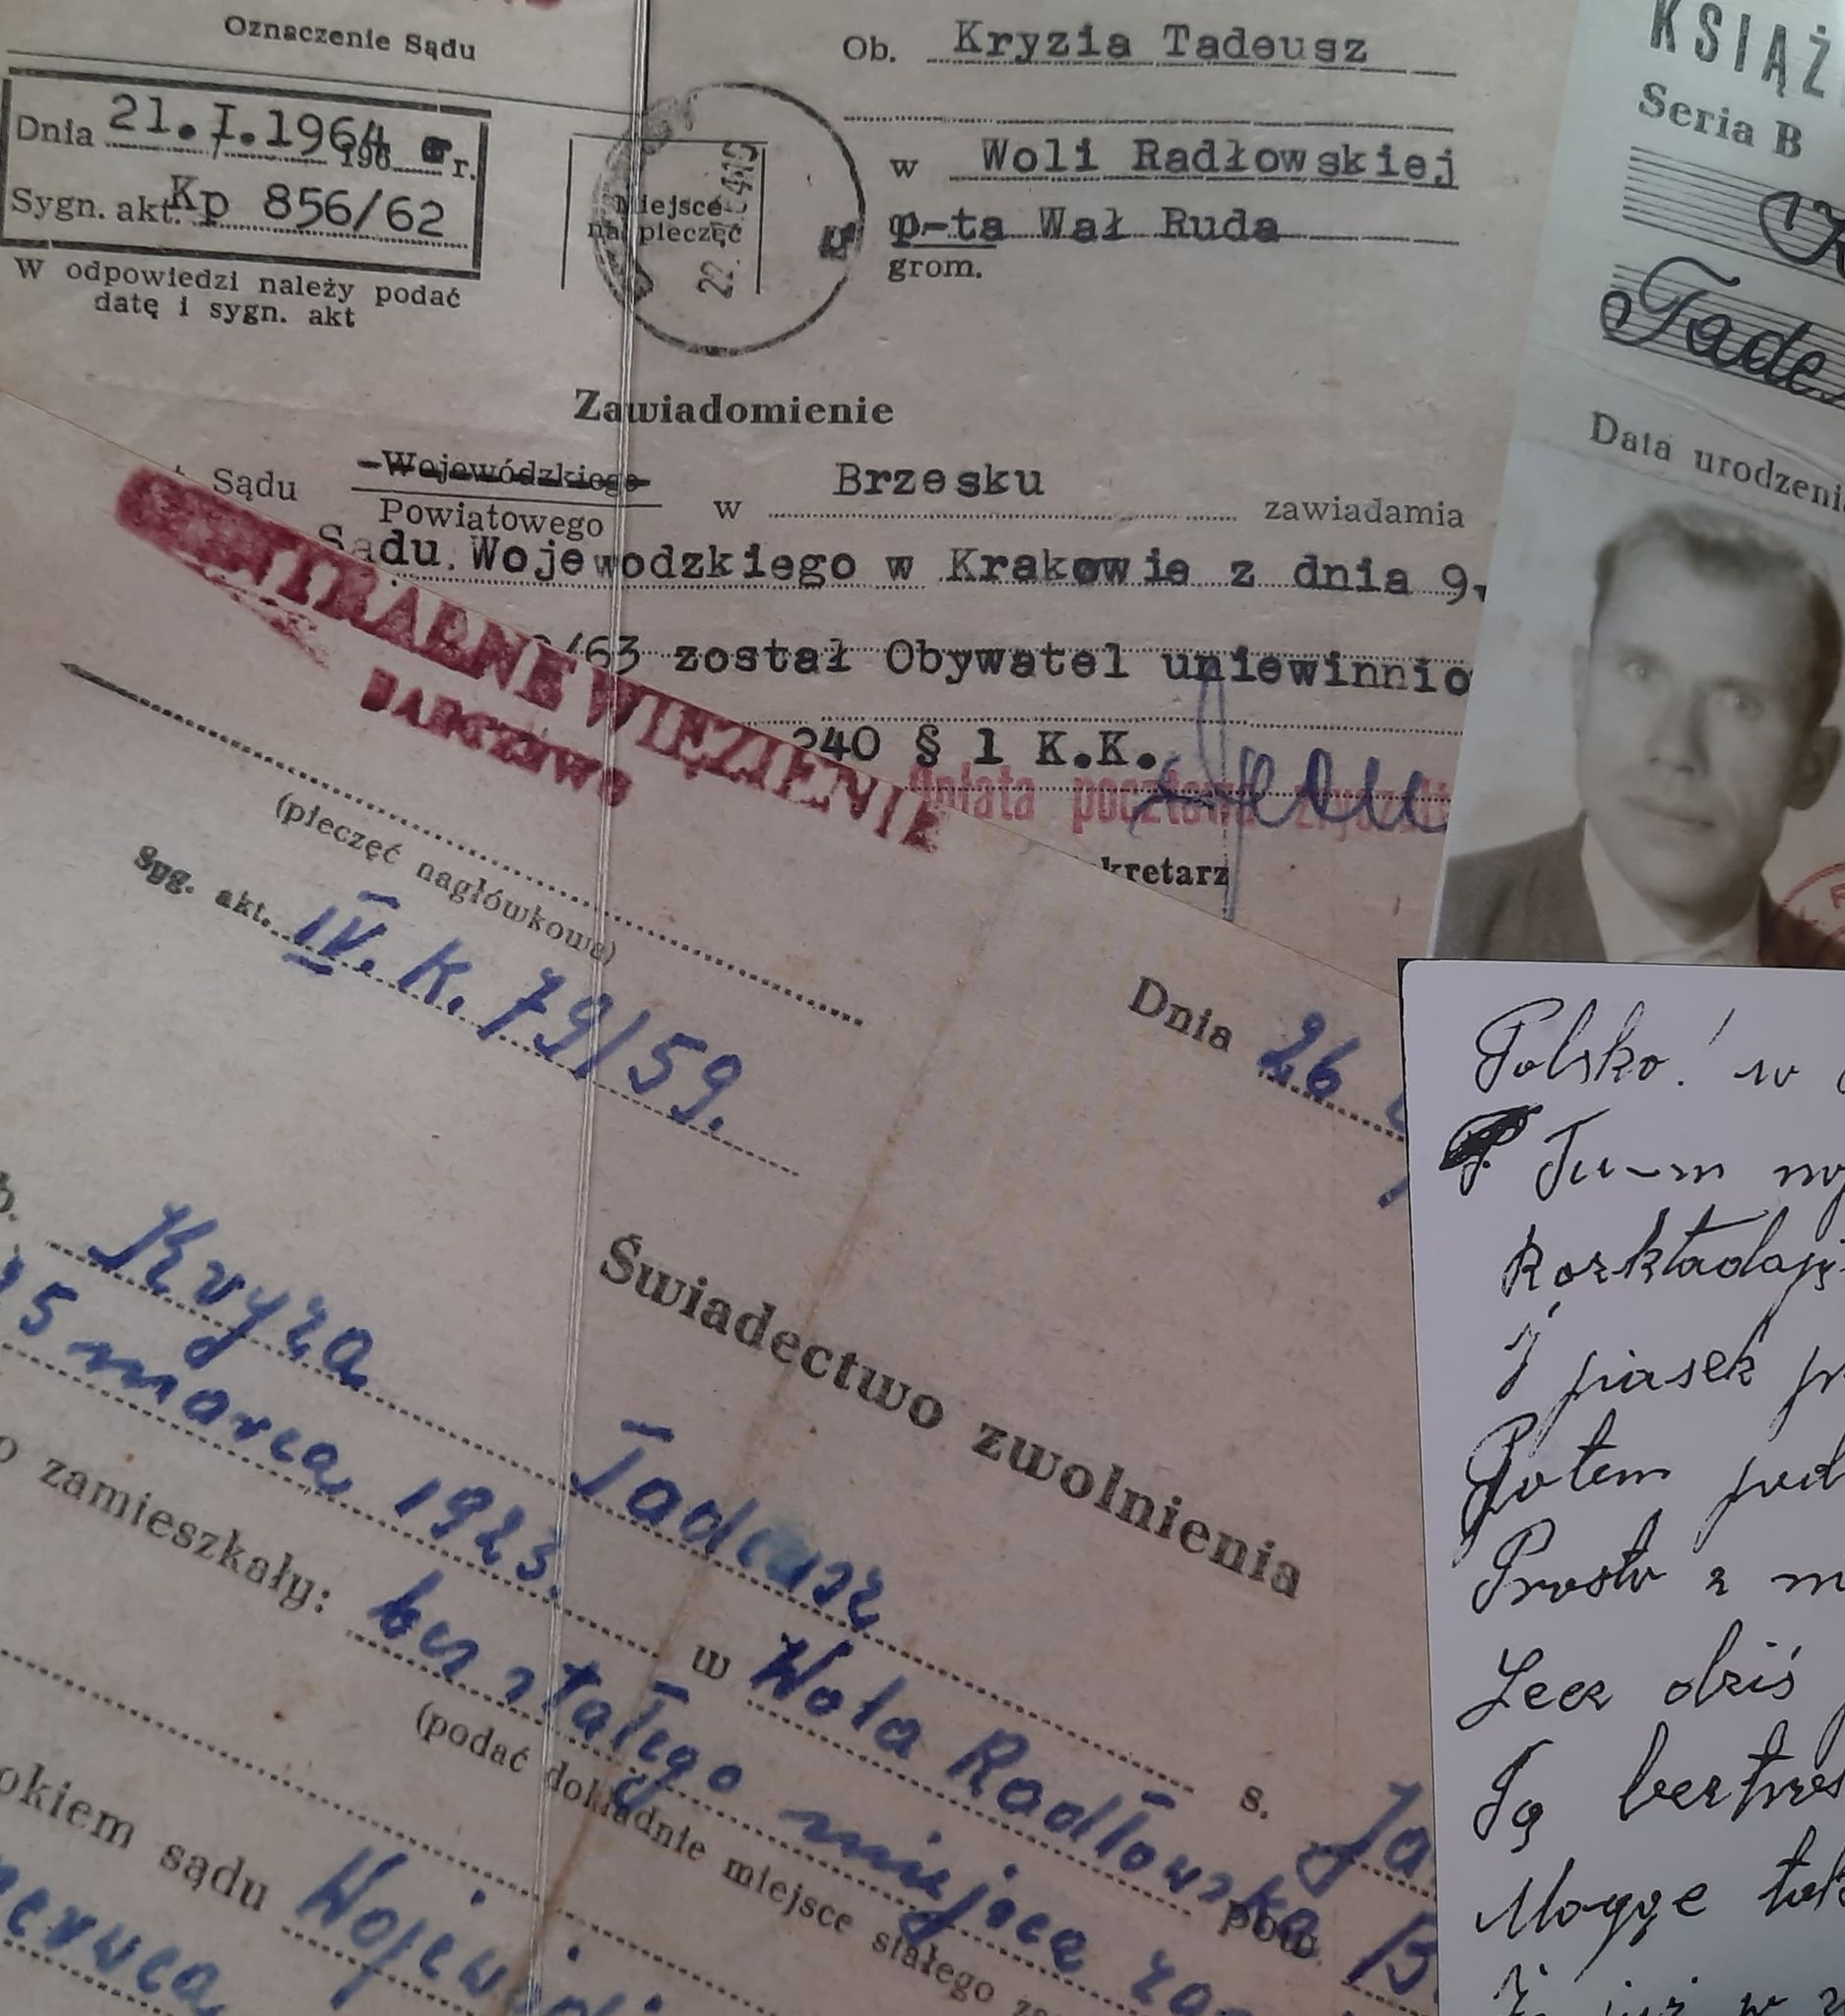 Oznaczenie Sądu
Dnia 21.I.1964 196 r.
Sygn. akt. Kp 856/62
W odpowiedzi należy podać
datę i sygn. akt
Miejsce
na pieczęć
22.
Ob. Kryzia Tadeusz
w Woli Radłowskiej
p-ta Wał Ruda
grom.
Zawiadomienie
Sądu Wojewódzkiego
Powiatowego w Brzesku zawiadamia
Sądu Wojewodzkiego w Krakowie z dnia 9.
/63 został Obywatel uniewinnio
240 § 1 K.K.
Opłata pocztowa
kretarz
KSIĄŻ
Seria B
Tade
Data urodzeni
WIĘZIENIE
BARCZEWO
(pieczęć nagłówkowa)
Syg. akt. IV. K. 79/59.
Dnia 26
Świadectwo zwolnienia
Kryza Tadeusz s. Ja
5 marca 1923. w Wola Radłowska pow. B
o zamieszkały: bez stałego miejsca za
(podać dokładnie miejsce stałego za
okiem sądu Wojewódz
czerwca
Polsko! w
Tu-m
Rozkładaj
I piasek pr
Potem pod
Prosto z m
Lecz dziś
Ją
Mogę